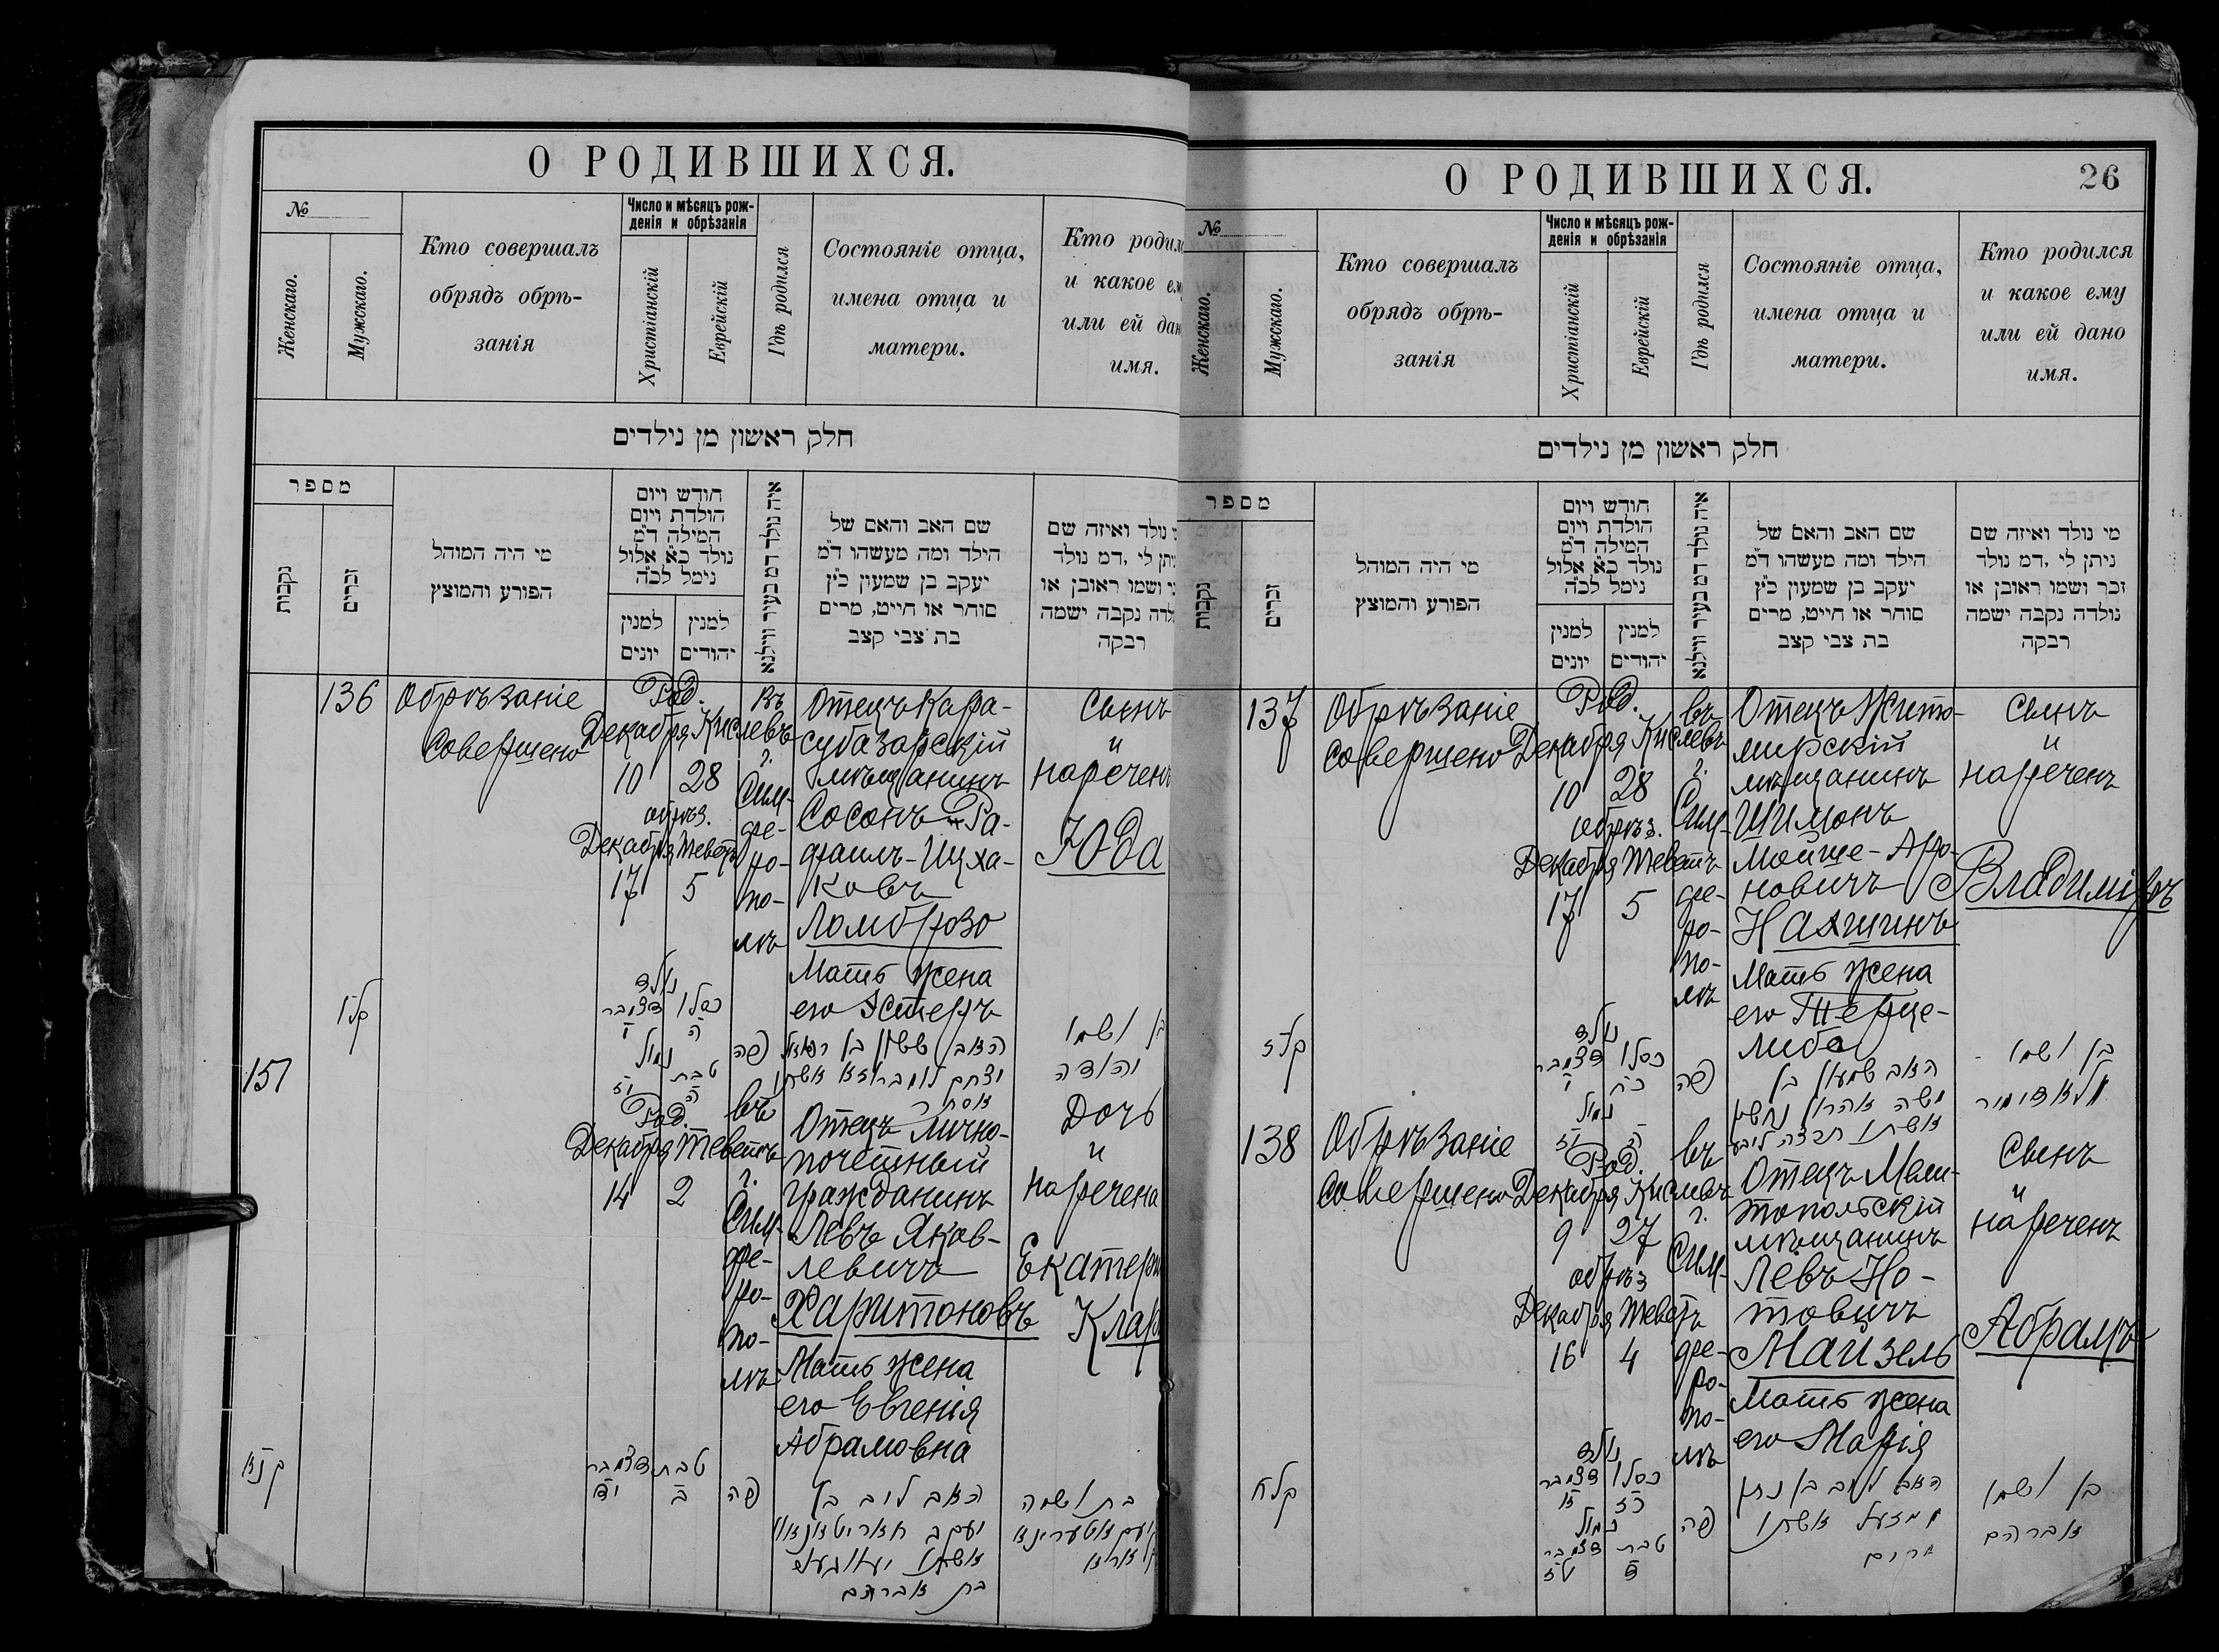 О РОДИВШИХСЯ.
№
Женскаго.
Мужскаго.
Кто совершалъ
обрядъ обрѣ-
занія
Число и мѣсяцъ рож-
денія и обрѣзанія
Христіанскій
Еврейскій
Гдѣ родился
Состояніе отца,
имена отца и
матери.
Кто родил
и какое ем
или ей дан
имя.
חלק ראשון מן נילדים
מספר
נקבות
זכרים
מי היה המוהל
הפורע והמוצץ
חודש ויום
הולדת ויום
המילה ד״מ
נולד כא אלול
נימל לכ״ה
למנין
יונים
למנין
יהודים
איה נולד דמ בעיר ווילנא
שם האב והאם של
הילד ומה מעשהו ד״מ
יעקב בן שמעון כ״ץ
סוחר או חייט, מרים
בת צבי קצב
נולד ואיזה שם
ושמו ראובן או
נקבה ישמה
רבקה
136
Обрѣзаніе
совершено
Род.
Декабря Кислевъ
10 28
обрѣз.
Декабря Теветъ
17 5
Въ
г.
Сим-
фе-
ро-
по-
лѣ
Отецъ Кара-
субазарскій
мѣщанинъ
Сосонъ Ра-
фаилъ-Ицха-
ковъ
Ломброзо
Мать жена
его Эстеръ
Сынъ
и
нареченъ
Юда
קלו
נולד
כסלו דצמבר
נמול
טבת
פה
בן ושמו
יהודה
151
Род.
Декабря Теветъ
14 2
въ
г.
Сим-
фе-
ро-
по-
лѣ
Отецъ лично-
почетный
гражданинъ
Левъ Яков-
левичъ
Харитоновъ
Мать жена
его Евгенія
Абрамовна
Дочь
и
наречена
Екатери
Клар
קנא
טבת דצמבר
ב יד
פה
האב ליב בן
יעקב
אשתו
בת אברהם
בת ושמה
О РОДИВШИХСЯ.
26
№
Женскаго.
Мужскаго.
Кто совершалъ
обрядъ обрѣ-
занія
Число и мѣсяцъ рож-
денія и обрѣзанія
Христіанскій
Еврейскій
Гдѣ родился
Состояніе отца,
имена отца и
матери.
Кто родился
и какое ему
или ей дано
имя.
חלק ראשון מן נילדים
מספר
נקבות
זכרים
מי היה המוהל
הפורע והמוצץ
חודש ויום
הולדת ויום
המילה ד״מ
נולד כא אלול
נימל לכ״ה
למנין
יונים
למנין
יהודים
איה נולד דמ בעיר ווילנא
שם האב והאם של
הילד ומה מעשהו ד״מ
יעקב בן שמעון כ״ץ
סוחר או חייט, מרים
בת צבי קצב
מי נולד ואיזה שם
ניתן לי, דמ נולד
זכר ושמו ראובן או
נולדה נקבה ישמה
רבקה
137
Обрѣзаніе
совершено
Род.
Декабря Кислевъ
10 28
обрѣз.
Декабря Теветъ
17 5
въ
г.
Сим-
фе-
ро-
по-
лѣ
Отецъ Жито-
мирскій
мѣщанинъ
Шимонъ
Мойше-Аро-
новичъ
Нахшинъ
Мать жена
его Терце-
Либа
Сынъ
и
нареченъ
Владиміръ
קלז
נולד
כסלו דצמבר
כח י
נמול
ה יז
פה
האב שמעון בן
משה אהרון נחשין
אשתו תרצה ליבע
בן ושמו
וולאדימיר
138
Обрѣзаніе
совершено
Род.
Декабря Кислевъ
9 27
обрѣз
Декабря Теветъ
16 4
въ
г.
Сим-
фе-
ро-
по-
лѣ
Отецъ Мели-
топольскій
мѣщанинъ
Левъ Но-
товичъ
Майзель
Мать жена
его Марія
Сынъ
и
нареченъ
Абрамъ
קלח
נולד
כסלו דצמבר
כז
נמול
טבת דצמבר
ד טז
פה
האב ליב בן נתן
מאזעל אשתו
מרים
בן ושמו
אברהם